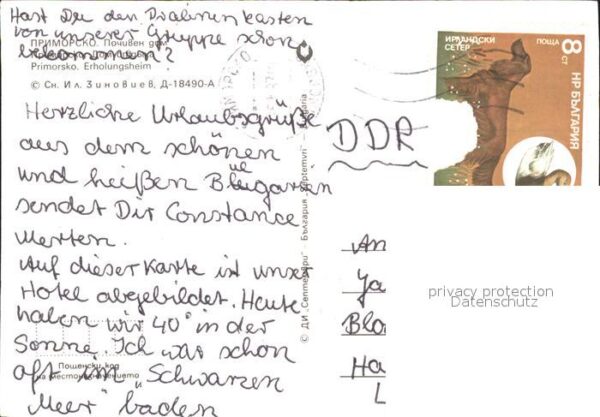 Hast Du den Pralinenkasten
von unserer Gruppe schon
bekommen?
ПРИМОРСКО. Почивен дом
Primorsko. Erholungsheim
© Сн. Ил. Зиновиев, Д-18490-А
Herzliche Urlaubsgrüße
aus dem schönen
und heißen Bulgarien
sendet Dir Constance
Merten.
Auf dieser Karte ist unser
Hotel abgebildet. Heute
haben wir 40° in der
Sonne. Ich war schon
oft im „Schwarzen
Meer" baden
Пощенски код
на местоназначението
© ДИ „Септември" - България „Septemvri" Bulgaria
DDR
ИРЛАНДСКИ
СЕТЕР
ПОЩА
8
СТ
НР БЪЛГАРИЯ
An
Ya
Bla
Ha
L
privacy protection
Datenschutz